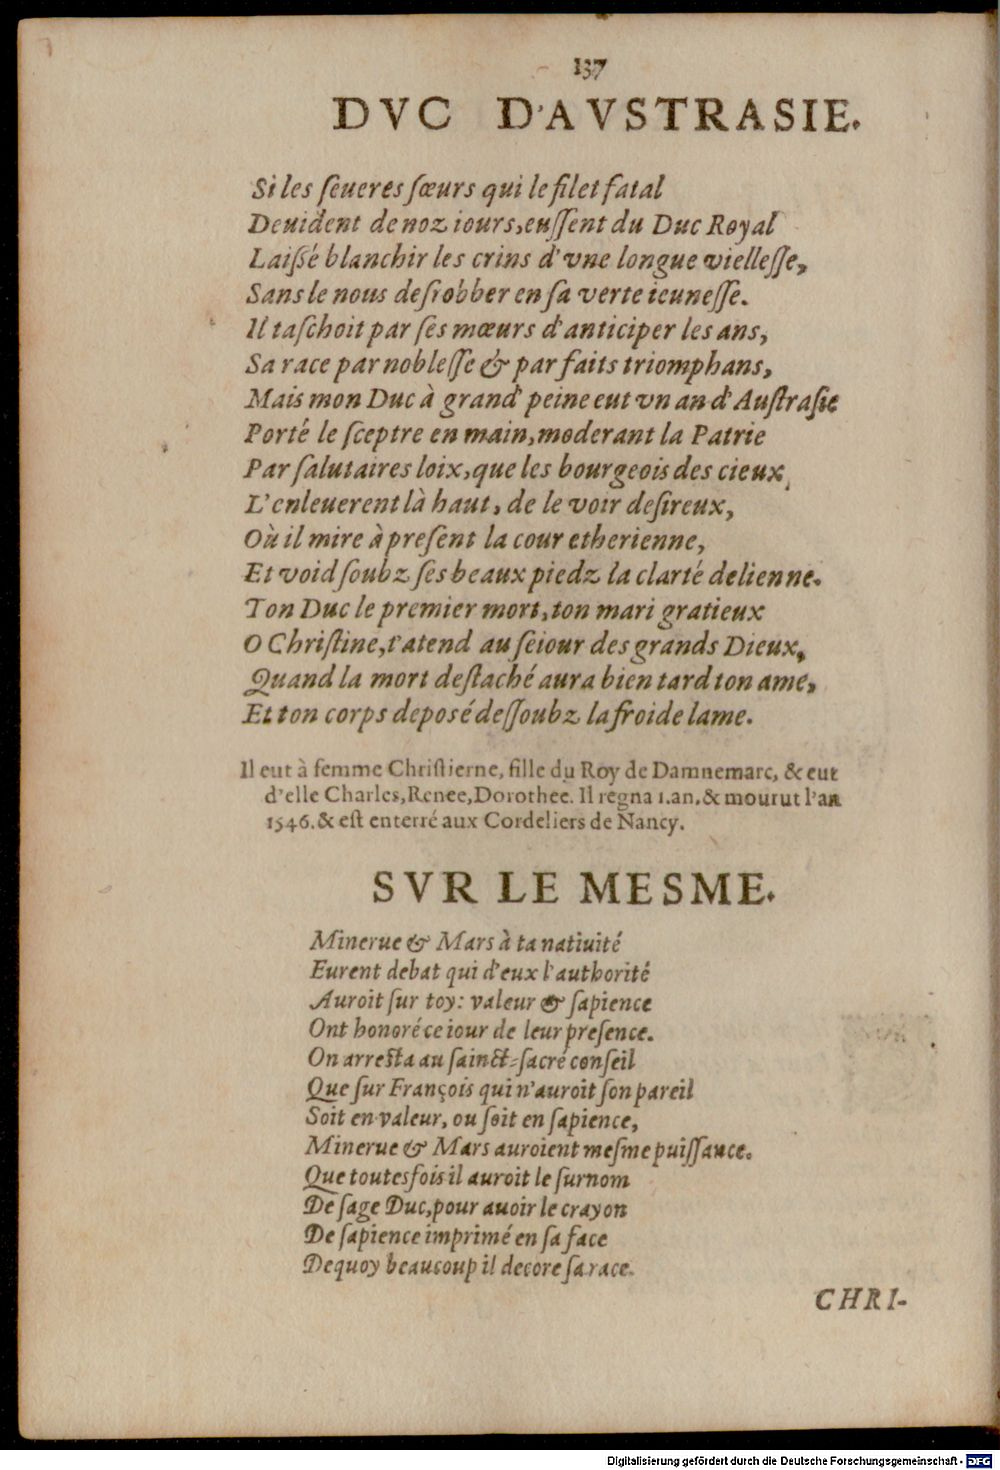 137
DVC D'AVSTRASIE.
Si les ſeueres ſœurs qui le filet fatal
Deuident de noz iours, euſſent du Duc Royal
Laiſſé blanchir les crins d'vne longue vielleſſe,
Sans le nous deſrobber en ſa verte ieuneſſe.
Il taſchoit par ſes mœurs d'anticiper les ans,
Sa race par nobleſſe & par faits triomphans,
Mais mon Duc à grand' peine eut vn an d'Auſtraſie
Porté le ſceptre en main, moderant la Patrie
Par ſalutaires loix, que les bourgeois des cieux,
L'enleuerent là haut, de le voir deſireux,
Où il mire à preſent la cour etherienne,
Et void ſoubz ſes beaux piedz la clarté delienne.
Ton Duc le premier mort, ton mari gratieux
O Chriſtine, t'atend au ſeiour des grands Dieux,
Quand la mort deſtaché aura bien tard ton ame,
Et ton corps depoſé deſſoubz la froide lame.
Il eut à femme Chriſtierne, fille du Roy de Damnemarc, & eut
d'elle Charles, Renee, Dorothee. Il regna 1. an, & mourut l'an
1546. & eſt enterré aux Cordeliers de Nancy.
SVR LE MESME.
Minerue & Mars à ta natiuité
Eurent debat qui d'eux l'authorité
Auroit ſur toy: valeur & ſapience
Ont honoré ce iour de leur preſence.
On arreſta au ſainct-ſacré conſeil
Que ſur François qui n'auroit ſon pareil
Soit en valeur, ou ſoit en ſapience,
Minerue & Mars auroient meſme puiſſance.
Que toutesfois il auroit le ſurnom
De ſage Duc, pour auoir le crayon
De ſapience imprimé en ſa face
Dequoy beaucoup il decore ſa race.
CHRI-
Digitalisierung gefördert durch die Deutsche Forschungsgemeinschaft - DFG